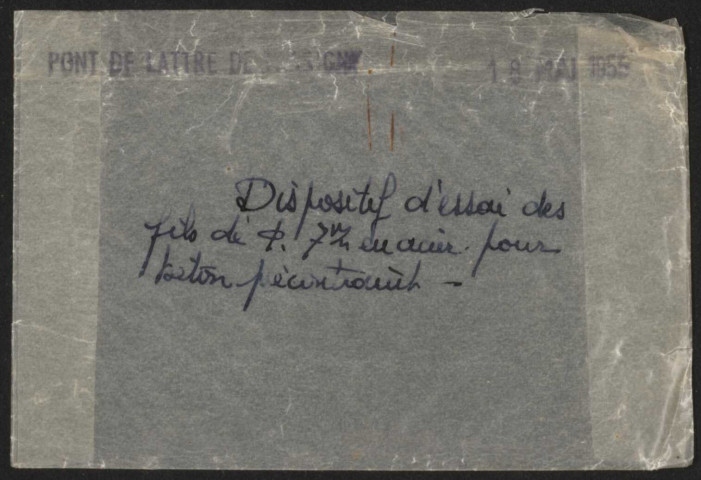 PONT DE LATTRE DE 18 MAI 1955
Dispositif d'essai des
fils de Φ. 7 m/m en acier pour
béton précontraint -